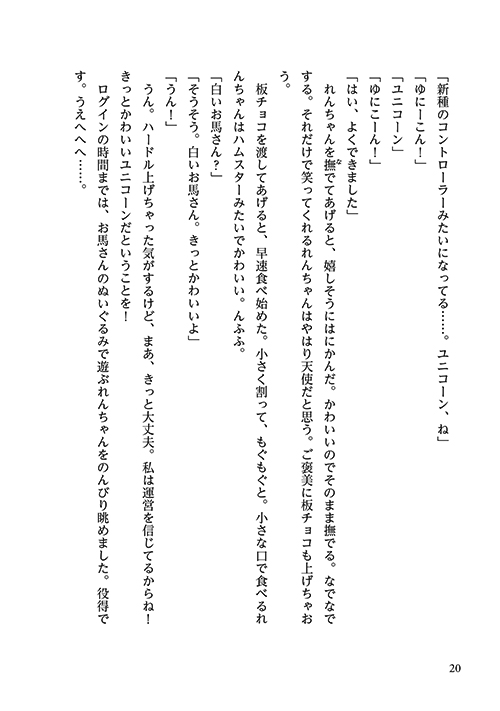 「新種のコントローラーみたいになってる……。ユニコーン、ね」
「ゆにーこん！」
「ユニコーン」
「ゆにこーん！」
「はい、よくできました」
れんちゃんを撫でてあげると、嬉しそうにはにかんだ。かわいいのでそのまま撫でる。なでなで
な
する。それだけで笑ってくれるれんちゃんはやはり天使だと思う。ご褒美に板チョコも上げちゃお
う。
板チョコを渡してあげると、早速食べ始めた。小さく割って、もぐもぐと。小さな口で食べるれ
んちゃんはハムスターみたいでかわいい。んふふ。
「白いお馬さん？」
「そうそう。白いお馬さん。きっとかわいいよ」
「うん！」
うん。ハードル上げちゃった気がするけど、まあ、きっと大丈夫。私は運営を信じてるからね！
きっとかわいいユニコーンだということを！
ログインの時間までは、お馬さんのぬいぐるみで遊ぶれんちゃんをのんびり眺めました。役得で
す。うえへへへ……。
20